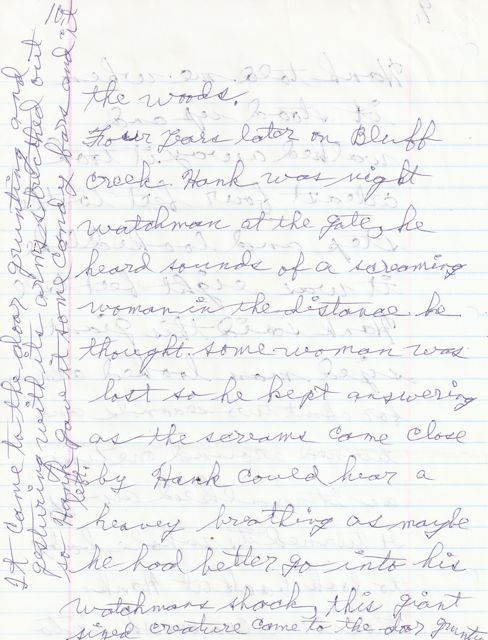 the woods.
Four Years later on Bluff
Creek. Hank was night
watchman at the gate, he
heard sounds of a screaming
woman in the distance he
thought some woman was
lost so he kept answering
as the screams come close
by Hank could hear a
heavey breathing as maybe
he had better go into his
watchmans shack, this giant
sized creature come to the door grunting
It came to the door grunting and
gesturing with its arms stretched out
so Hank gave it some candy bars and it
left.